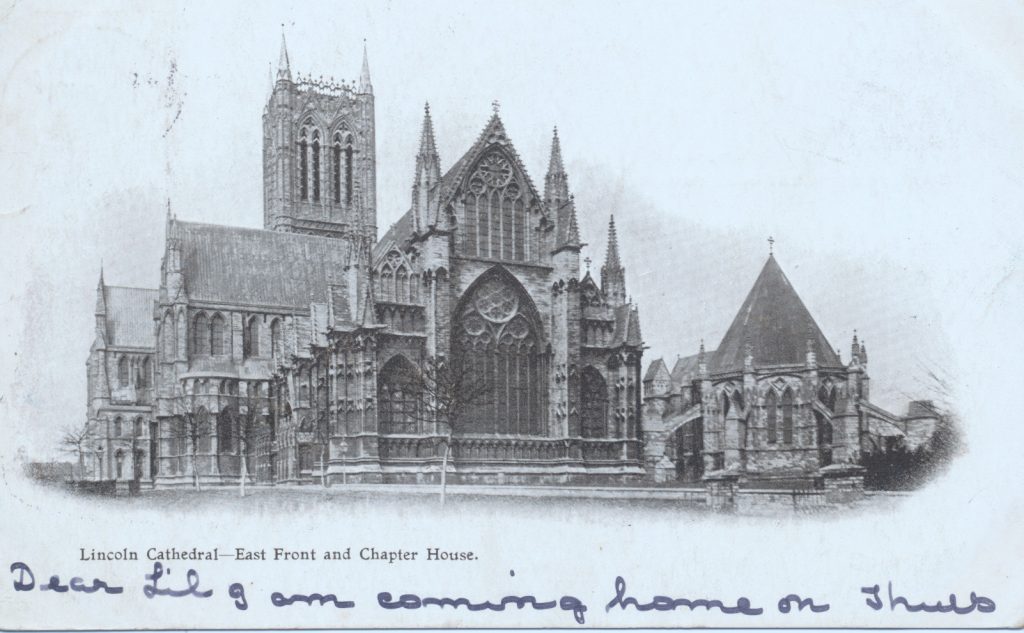 Lincoln Cathedral—East Front and Chapter House.
Dear Lil I am coming home on Thurs